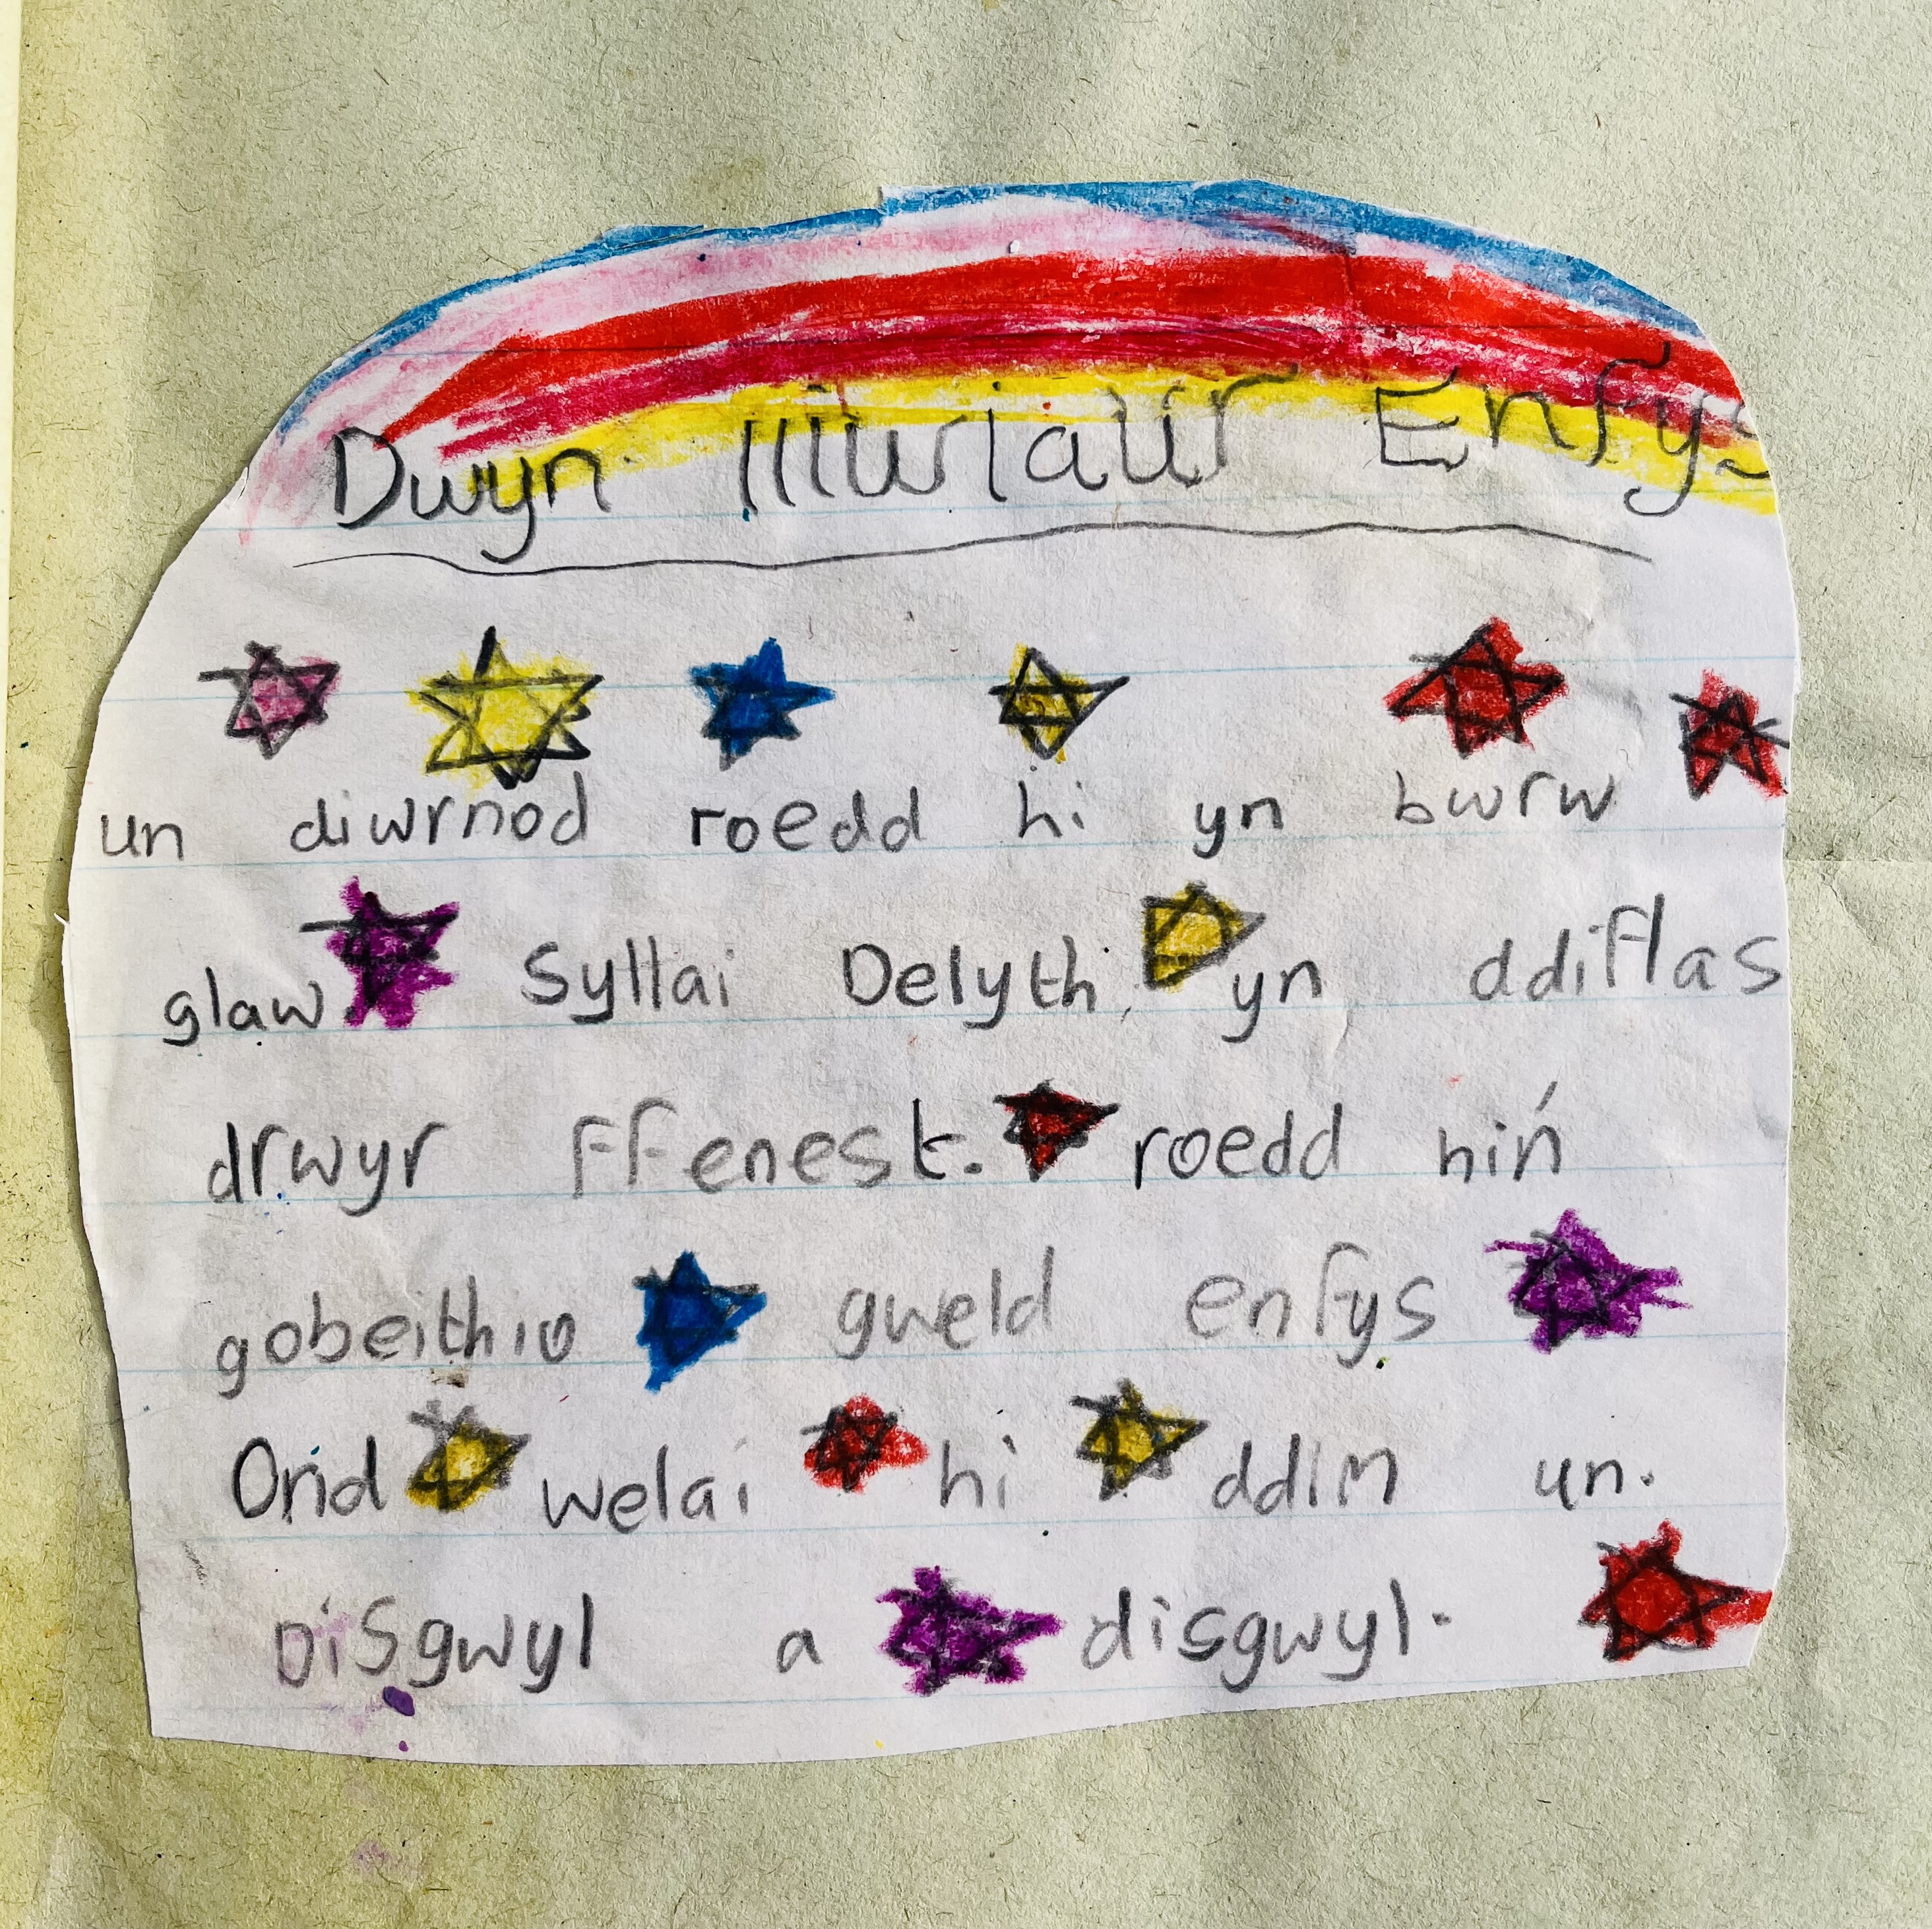 Dwyn lliwiaur Enfys
un diwrnod roedd hi yn bwrw
glaw. Syllai Delyth, yn ddiflas
drwyr ffenest. roedd hi'n
gobeithio gweld enfys
Ond welai hi ddim un.
Disgwyl a disgwyl.